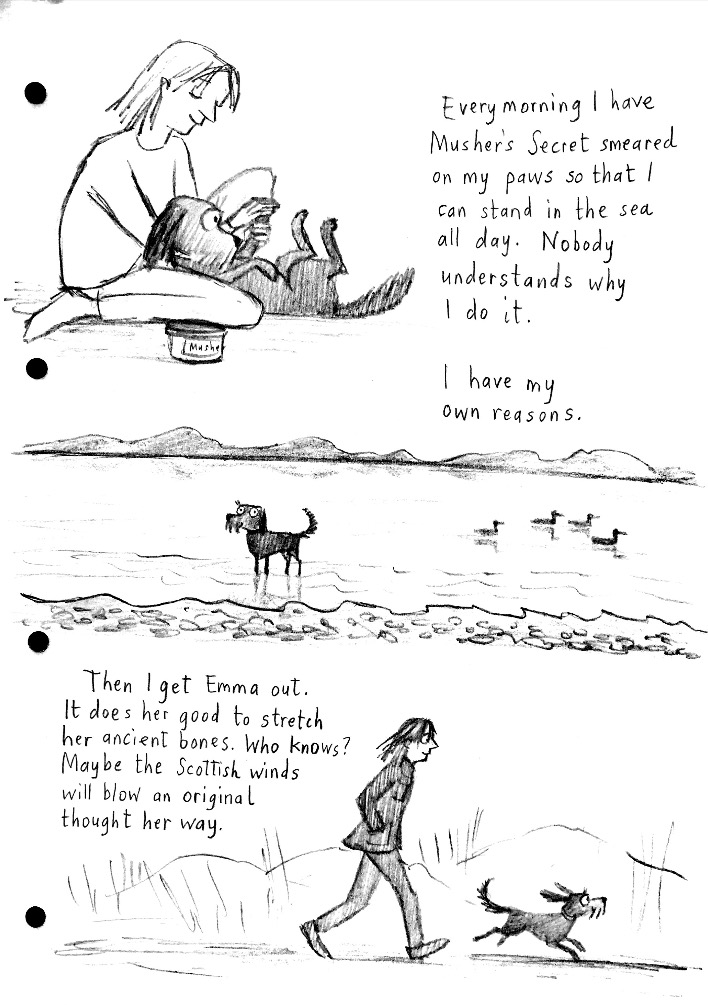 Every morning I have
Musher's Secret smeared
on my paws so that I
can stand in the sea
all day. Nobody
understands why
I do it.
I have my
own reasons.
Mushe
Then I get Emma out.
It does her good to stretch
her ancient bones. Who knows?
Maybe the Scottish winds
will blow an original
thought her way.